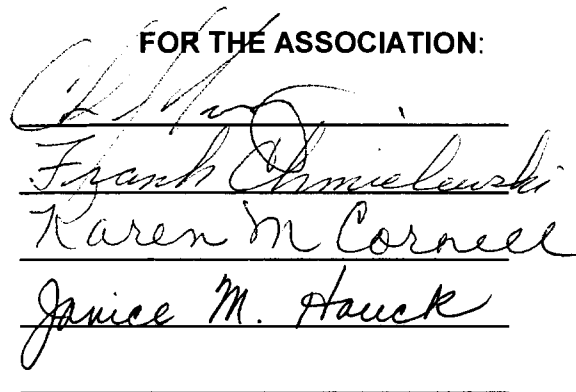 FOR THE ASSOCIATION:
Frank Chmielewski
Karen M Cornell
Janice M. Hauck